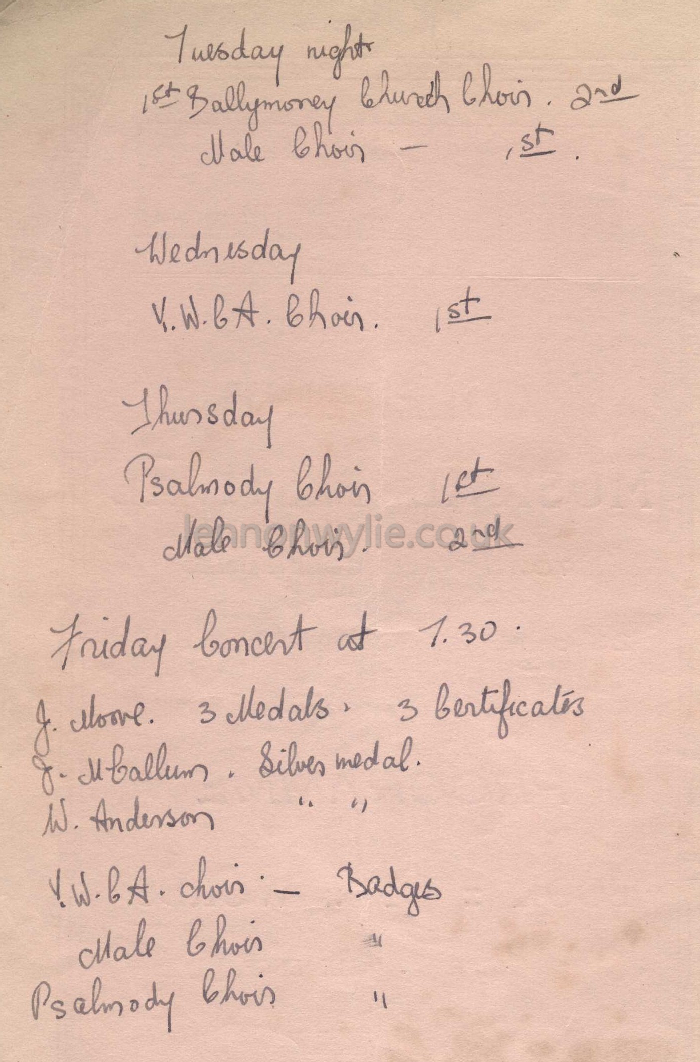 Tuesday night
1st Ballymoney Church Choir. 2nd
Male Choir – 1st.
Wednesday
Y.W.C.A. Choir. 1st
Thursday
Psalmody Choir 1st
Male Choir. 2nd
lennonwylie.co.uk
Friday Concert at 7.30.
J. Moore. 3 Medals. 3 Certificates
J. McCallum. Silver medal.
W. Anderson " "
Y.W.C.A. choir – Badges
Male Choir "
Psalmody Choir "